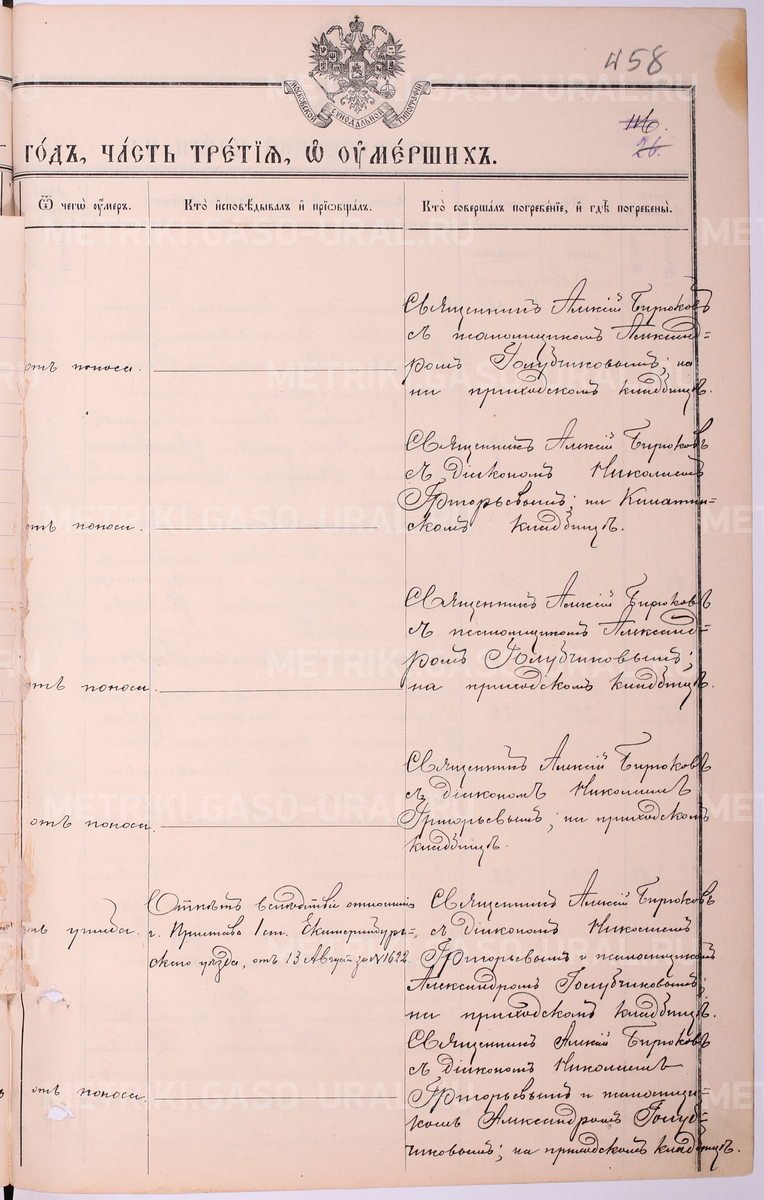 458
МОСКОВСКОЙ СѴНОДАЛЬНОЙ ТИПОГРАФІИ
116.
26.
ГО́ДЪ, ЧА́СТЬ ТРЕ́ТІЯ, Ѡ҆ ОУ҆МЕ́РШИХЪ.
Ѿ чегѡ̀ ᲂу҆́меръ.
Кто̀ и҆сповѣ́дывалъ и҆ прїѡбща́лъ.
Кто̀ соверша́лъ погребе́нїе, и҆ гдѣ̀ погребены̀.
Священникъ Алексій Бирюковъ
съ псаломщикомъ Александ-
ромъ Голубчиковымъ; на
отъ поноса.
на приходскомъ кладбищѣ.
Священникъ Алексій Бирюковъ
съ діакономъ Николаемъ
Григорьевымъ; на
скомъ кладбищѣ.
отъ поноса.
Священникъ Алексій Бирюковъ
съ псаломщикомъ Александ-
ромъ Голубчиковымъ;
на приходскомъ кладбищѣ.
отъ поноса.
Священникъ Алексій Бирюковъ
съ діакономъ Николаемъ
Григорьевымъ; на приходскомъ
кладбищѣ.
отъ поноса.
Отпѣтъ вслѣдствіе отношенія
г. Пристава 1 ст. Екатеринбург-
скаго уѣзда, отъ 13 Августа за № 1622.
Священникъ Алексій Бирюковъ
съ діакономъ Николаемъ
Григорьевымъ и псаломщикомъ
Александромъ Голубчиковымъ;
на приходскомъ кладбищѣ.
отъ поноса.
Священникъ Алексій Бирюковъ
съ діакономъ Николаемъ
Григорьевымъ и псаломщи-
комъ Александромъ Голуб-
чиковымъ; на приходскомъ кладбищѣ.
METRIKI.GASO-URAL.RU